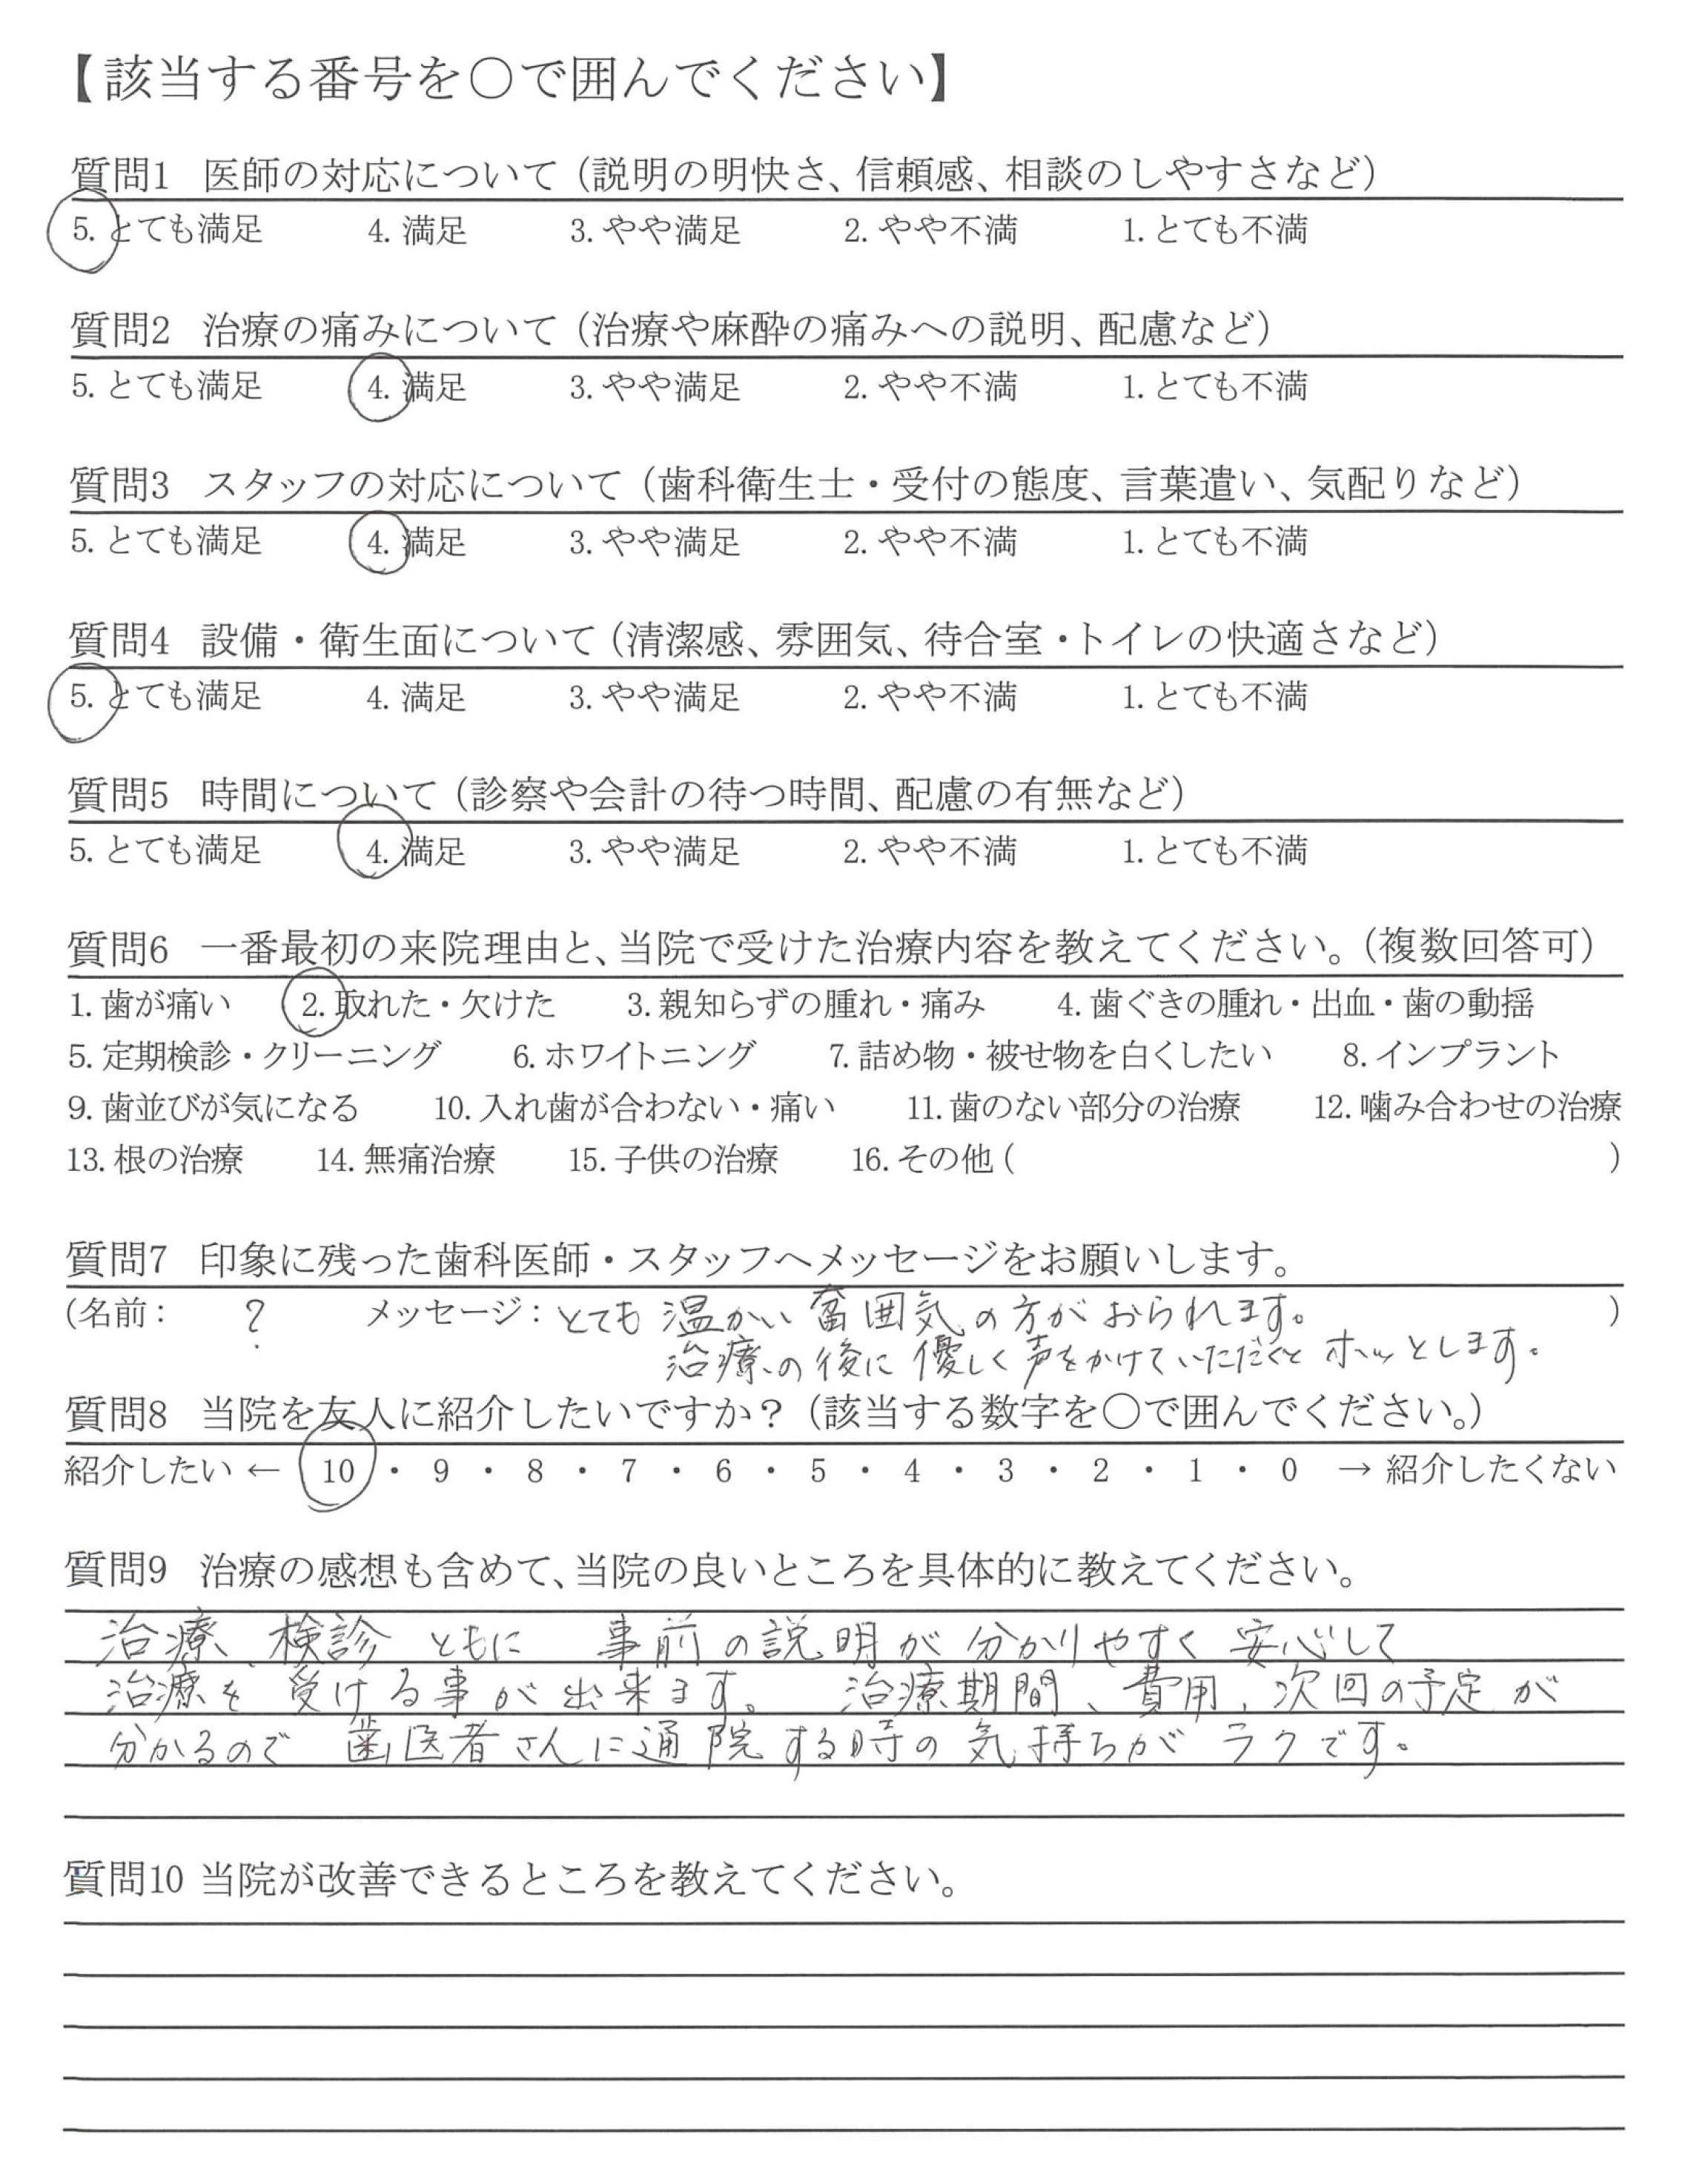 【該当する番号を○で囲んでください】
質問1 医師の対応について（説明の明快さ、信頼感、相談のしやすさなど）
5. とても満足 4. 満足 3. やや満足 2. やや不満 1. とても不満
質問2 治療の痛みについて（治療や麻酔の痛みへの説明、配慮など）
5. とても満足 4. 満足 3. やや満足 2. やや不満 1. とても不満
質問3 スタッフの対応について（歯科衛生士・受付の態度、言葉遣い、気配りなど）
5. とても満足 4. 満足 3. やや満足 2. やや不満 1. とても不満
質問4 設備・衛生面について（清潔感、雰囲気、待合室・トイレの快適さなど）
5. とても満足 4. 満足 3. やや満足 2. やや不満 1. とても不満
質問5 時間について（診察や会計の待つ時間、配慮の有無など）
5. とても満足 4. 満足 3. やや満足 2. やや不満 1. とても不満
質問6 一番最初の来院理由と、当院で受けた治療内容を教えてください。（複数回答可）
1. 歯が痛い 2. 取れた・欠けた 3. 親知らずの腫れ・痛み 4. 歯ぐきの腫れ・出血・歯の動揺
5. 定期検診・クリーニング 6. ホワイトニング 7. 詰め物・被せ物を白くしたい 8. インプラント
9. 歯並びが気になる 10. 入れ歯が合わない・痛い 11. 歯のない部分の治療 12. 噛み合わせの治療
13. 根の治療 14. 無痛治療 15. 子供の治療 16. その他（ ）
質問7 印象に残った歯科医師・スタッフへメッセージをお願いします。
（名前： ? メッセージ：とても 温かい 雰囲気の方が おられます。 ）
治療の後に 優しく声をかけていただくと ホッとします。
質問8 当院を友人に紹介したいですか？（該当する数字を○で囲んでください。）
紹介したい ← 10 ・ 9 ・ 8 ・ 7 ・ 6 ・ 5 ・ 4 ・ 3 ・ 2 ・ 1 ・ 0 → 紹介したくない
質問9 治療の感想も含めて、当院の良いところを具体的に教えてください。
治療、検診 ともに 事前の説明が 分かりやすく 安心して
治療を 受ける事が出来ます。 治療期間、費用、次回の予定が
分かるので 歯医者さんに通院する時の気持ちが ラクです。
質問10 当院が改善できるところを教えてください。